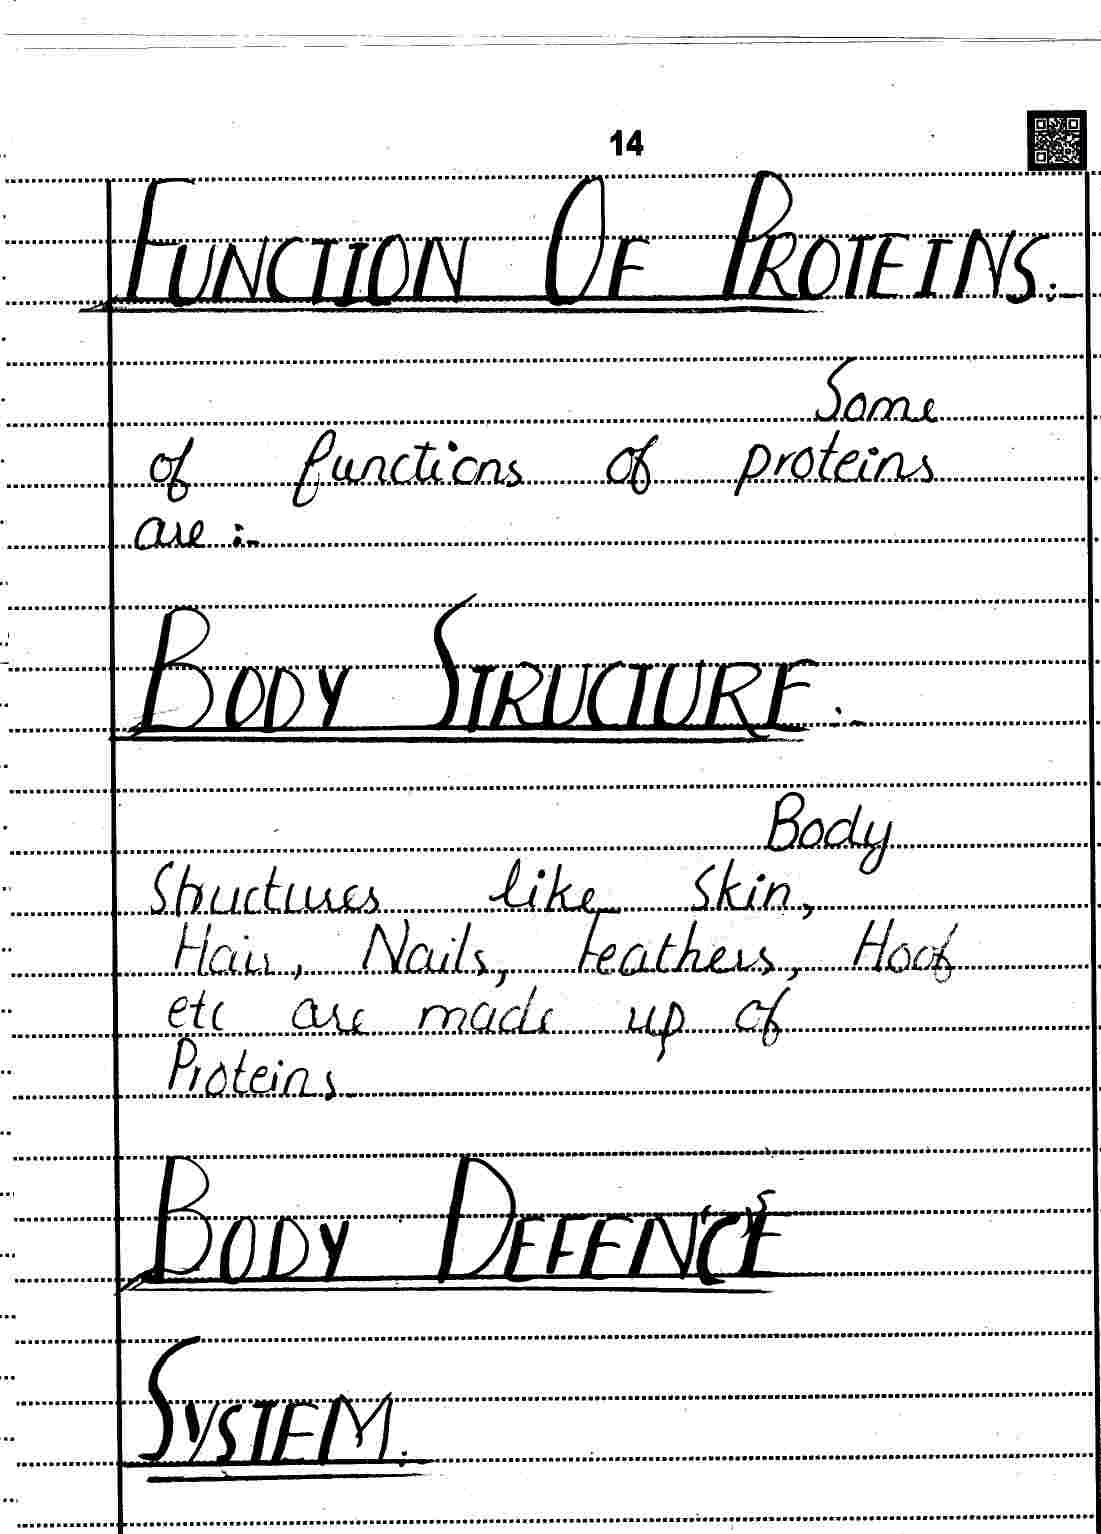 14
FUNCTION OF PROTEINS:-
Some
of functions of proteins
are :-
BODY STRUCTURE :-
Body
Structures like Skin,
Hair, Nails, Feathers, Hoof
etc are made up of
Proteins
BODY DEFFENCE
SYSTEM:-